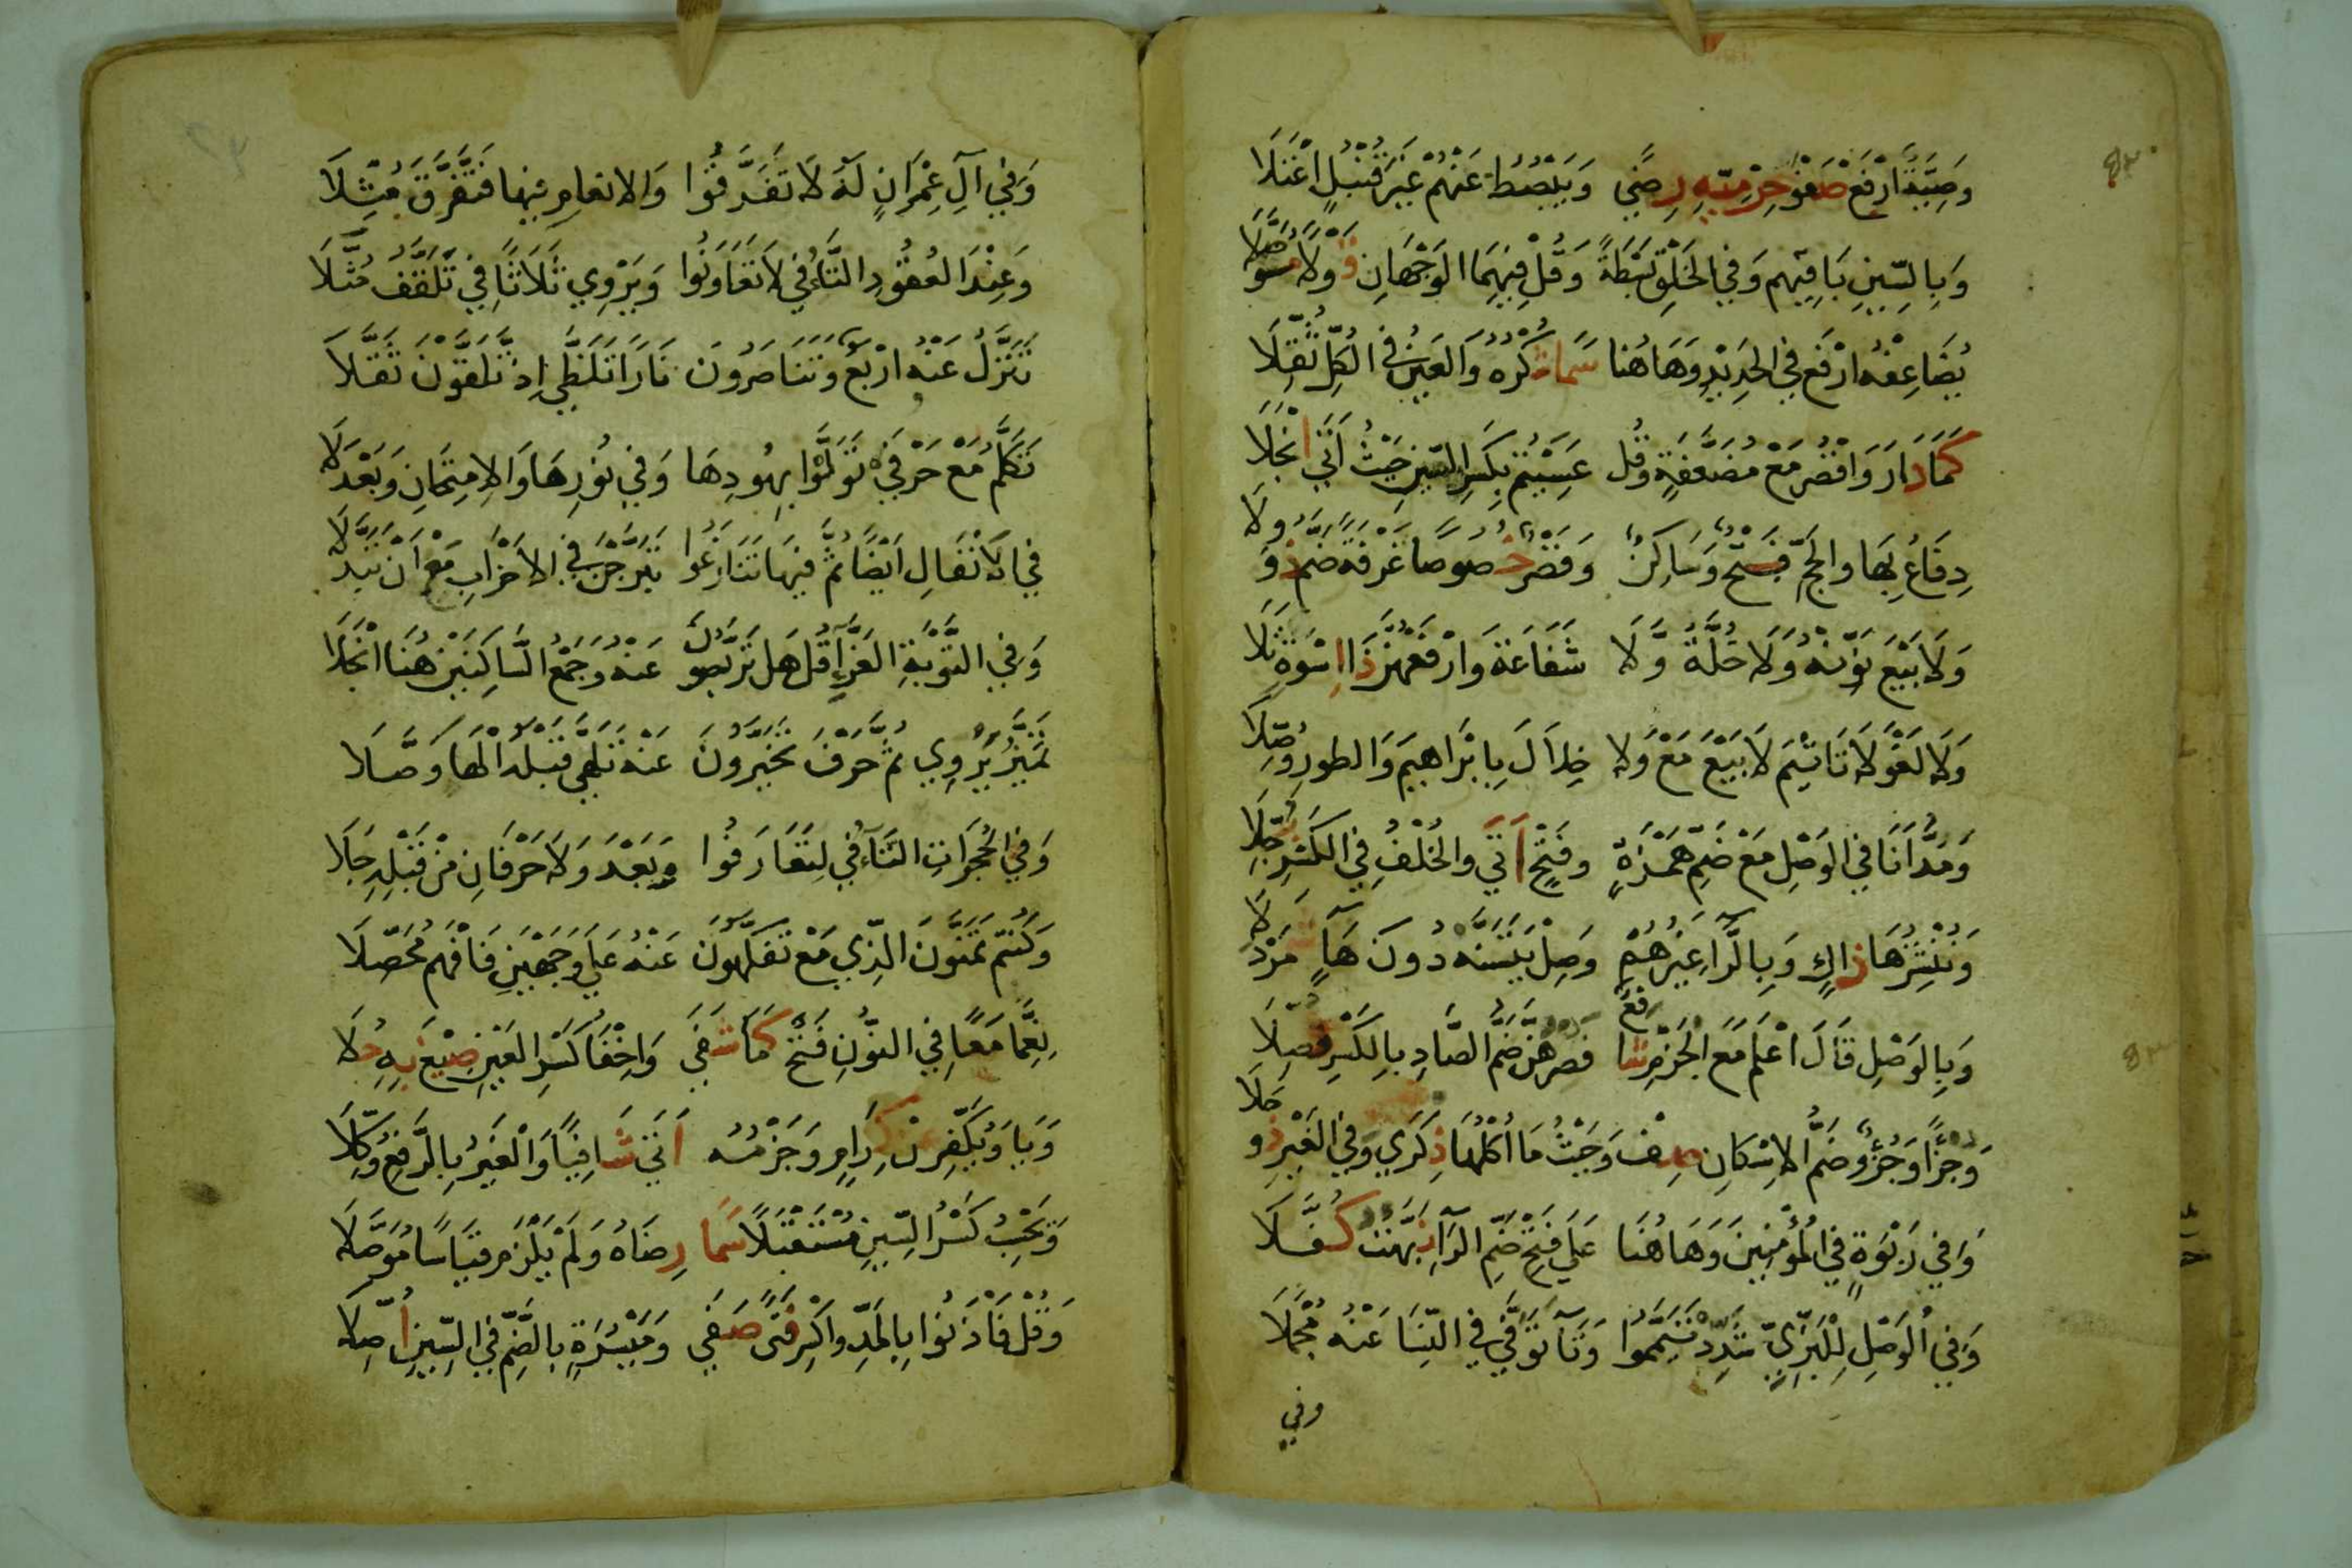 وَصِيَّةً ارْفَعْ صَفْوُ حِرْمِيِّهِ رِضًى وَيَبْصُطُ عَنْهُمْ غَيْرَ قُنْبُلٍ اعْتَلَا
وَبِالسِّينِ بَاقِيهِمْ وَفِي الْخَلْقِ بَسْطَةً وَقُلْ فِيهِمَا الْوَجْهَانِ قَوْلَا مُوَصَّلَا
يُضَاعِفُهُ ارْفَعْ فِي الْحَدِيدِ وَهَاهُنَا سَمَا شُكْرُهُ وَالْعَيْنُ فِي الْكُلِّ ثُقِّلَا
كَمَا دَارَ وَاقْصُرْ مَعْ مُضَعَّفَةٍ وَقُلْ عَسِيْتُمْ بِكَسْرِ السِّينِ حَيْثُ أَتَى انْجَلَا
دِفَاعُ بِهَا وَالْحَجِّ فَتْحٌ وَسَاكِنٌ وَقَصْرٌ خُصُوصًا غَرْفَةً ضَمَّ ذُو وِلَا
وَلَا بَيْعَ نَوِّنْهُ وَلَا خُلَّةٌ وَّلَا شَفَاعَةَ وَارْفَعْهُنَّ ذَا اسْوَةٍ تَلَا
وَلَا لَغْوَ لَا تَاثِيمَ لَا بَيْعَ مَعْ وَلَا خِلَالَ بِإِبْرَاهِيمَ وَالطُّورِ وُصِّلَا
وَمَدُّ أَنَا فِي الْوَصْلِ مَعْ ضَمِّ هَمْزَةٍ وَفَتْحٍ أَتَى وَالْخُلْفُ فِي الْكَسْرِ بُجِّلَا
وَنُنْشِزُهَا ذَاكٍ وَبِالرَّاءِ غَيْرُهُمْ وَصِلْ يَتَسَنَّهْ دُونَ هَاءٍ شَمَرْدَلَا
وَبِالْوَصْلِ قَالَ اعْلَمْ مَعَ الْجَزْمِ شَافِعٌ فَصُرْهُنَّ ضَمُّ الصَّادِ بِالْكَسْرِ فُصِّلَا
وَجُزْءًا وَجُزْءٌ ضَمَّ الْاِسْكَانِ صِفْ وَحَيْثُ مَا أُكْلُهَا ذِكْرَى وَفِي الْغَيْرِ ذُو حَلَا
وَفِي رَبْوَةٍ فِي الْمُؤْمِنِينَ وَهَاهُنَا عَلَى فَتْحِ ضَمِّ الرَّاءِ نَبَّهْتُ كُفَّلَا
وَفِي الْوَصْلِ لِلْبَزِّيِّ شَدِّدْ تَيَمَّمُوا وَتَاءَ تَوَفَّى فِي النِّسَا عَنْهُ مُجْمِلَا
وفي
وَفِي آلِ عِمْرَانٍ لَهُ لَا تَفَرَّقُوا وَالانعامِ فِيهَا فَتَفَرَّقَ مُثِّلَا
وَعِنْدَ الْعُقُودِ التَّاءُ فِي لَا تَعَاوَنُوا وَيَرْوِي ثَلَاثًا فِي تَلَقَّفُ مُثَّلَا
تَنَزَّلُ عَنْهُ ارْبَعٌ وَتَنَاصَرُونَ نَارًا تَلَظَّى إِذْ تَلَقَّوْنَ ثُقِّلَا
تَكَلَّمُ مَعْ حَرْفَيْ تَوَلَّوْا بِهُودِهَا وَفِي نُورِهَا وَالْامْتِحَانِ وَبَعْدَ لَا
فِي الْأَنْفَالِ أَيْضًا ثُمَّ فِيهَا تَنَازَعُوا تَبَرَّجْنَ فِي الْأَحْزَابِ مَعْ أَنْ تَبَدَّلَا
وَفِي التَّوْبَةِ الْغَرَّاءِ قُلْ هَلْ تَرَبَّصُونَ عَنْهُ وَجَمْعُ السَّاكِنَيْنِ هُنَا انْجَلَا
تَمَيَّزُ يَرْوِي ثُمَّ حَرْفَ تَخَيَّرُونَ عَنْهُ تَلَهَّى قَبْلَهُ الْهَاءَ وَصَّلَا
وَفِي الْحُجُرَاتِ التَّاءُ فِي لِتَعَارَفُوا وَبَعْدَ وَلَا حَرْفَانِ مِنْ قَبْلِهِ جَلَا
وَكُنْتُمْ تَمَنَّوْنَ الَّذِي مَعْ تَفَكَّهُونَ عَنْهُ عَلَى وَجْهَيْنِ فَافْهَمْ مُحَصِّلَا
نِعِمَّا مَعًا فِي النُّونِ فَتْحٌ كَمَا شَفَى وَإِخْفَاءُ كَسْرِ الْعَيْنِ صِيغَ بِهِ حُلَا
وَيَا وَيُكَفِّرْ عَنْ كِرَامٍ وَجَزْمُهُ أَتَى شَافِيًا وَالْغَيْرُ بِالرَّفْعِ وُكِّلَا
وَيَحْسِبُ كَسْرُ السِّينِ مُسْتَقْبَلًا سَمَا رِضَاهُ وَلَمْ يَلْزَمْ قِيَاسًا مُوَصَّلَا
وَقُلْ فَأْذَنُوا بِالْمَدِّ وَاكْسِرْ فَتًى صَفَى وَمَيْسُرَةٍ بِالضَّمِّ فِي السِّينِ أُصِّلَا